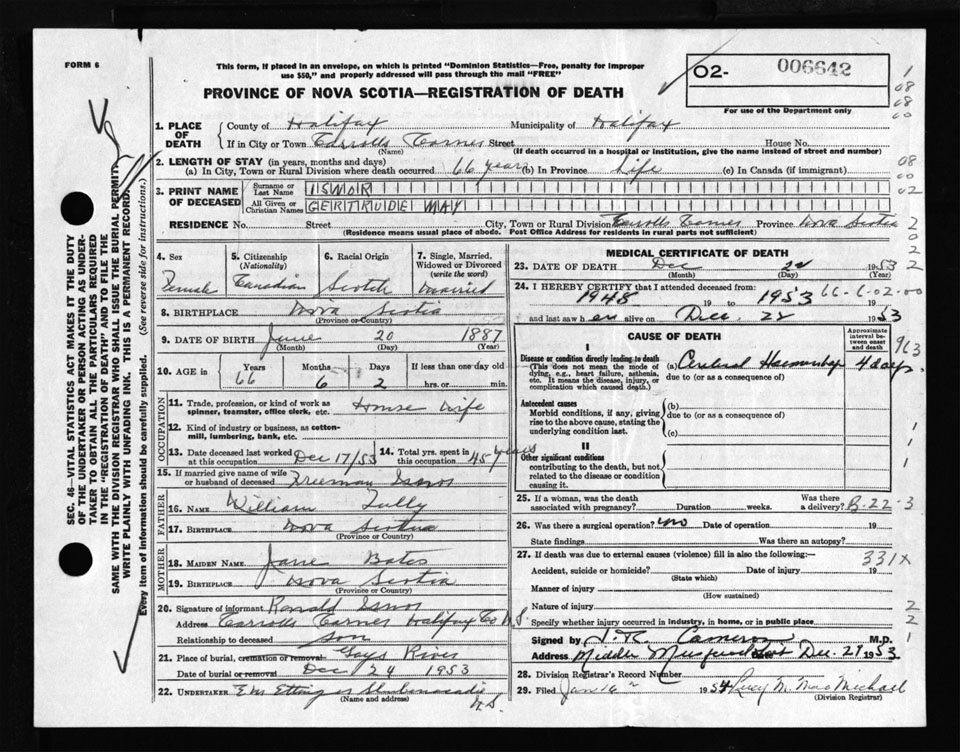 FORM 6
This form, if placed in an envelope, on which is printed "Dominion Statistics—Free, penalty for improper
use $50," and properly addressed will pass through the mail "FREE"
02- 006642
For use of the Department only
PROVINCE OF NOVA SCOTIA—REGISTRATION OF DEATH
1. PLACE OF DEATH County of Halifax Municipality of Halifax
If in City or Town Carrolls Corner Street House No.
(Name) (If death occurred in a hospital or institution, give the name instead of street and number)
2. LENGTH OF STAY (in years, months and days)
(a) In City, Town or Rural Division where death occurred 66 years (b) In Province Life (c) In Canada (if immigrant)
3. PRINT NAME OF DECEASED Surname or Last Name ISNOR
All Given or Christian Names GERTRUDE MAY
RESIDENCE No. Street City, Town or Rural Division Carrolls Corner Province Nova Scotia
(Residence means usual place of abode. Post Office Address for residents in rural parts not sufficient)
4. Sex Female
5. Citizenship (Nationality) Canadian
6. Racial Origin Scotch
7. Single, Married, Widowed or Divorced (write the word) Married
8. BIRTHPLACE Nova Scotia
(Province or Country)
9. DATE OF BIRTH June 20 1887
(Month) (Day) (Year)
10. AGE in Years Months Days If less than one day old
66 6 2 hrs. or min.
OCCUPATION
11. Trade, profession, or kind of work as spinner, teamster, office clerk, etc. House wife
12. Kind of industry or business, as cotton-mill, lumbering, bank, etc.
13. Date deceased last worked at this occupation Dec 17/53
14. Total yrs. spent in this occupation 45 years
15. If married give name of wife or husband of deceased Freeman Isnor
FATHER
16. NAME William Tully
17. BIRTHPLACE Nova Scotia
(Province or Country)
MOTHER
18. MAIDEN NAME Jane Bates
19. BIRTHPLACE Nova Scotia
(Province or Country)
20. Signature of informant Ronald Isnor
Address Carrolls Corner Halifax Co N.S.
Relationship to deceased son
21. Place of burial, cremation or removal Gays River
Date of burial or removal Dec 24 1953
22. UNDERTAKER E M Ettinger Shubenacadie
(Name and address) N.S.
MEDICAL CERTIFICATE OF DEATH
23. DATE OF DEATH Dec 22 1953
(Month) (Day)
24. I HEREBY CERTIFY that I attended deceased from:
1948 19 to 1953 66-6-02-00
and last saw her alive on Dec. 22 1953
CAUSE OF DEATH
Approximate interval between onset and death
963
I
Disease or condition directly leading to death
(This does not mean the mode of dying, e.g., heart failure, asthenia, etc. It means the disease, injury, or complication which caused death.)
(a) Cerebral Haemorrhage 4 days.
due to (or as a consequence of)
Antecedent causes
Morbid conditions, if any, giving rise to the above cause, stating the underlying condition last.
(b)
due to (or as a consequence of)
(c)
II
Other significant conditions
contributing to the death, but not related to the disease or condition causing it.
25. If a woman, was the death associated with pregnancy? Duration weeks. Was there a delivery? B-22-3
26. Was there a surgical operation? no Date of operation 19
State findings Was there an autopsy?
27. If death was due to external causes (violence) fill in also the following:— 331X
Accident, suicide or homicide? Date of injury 19
(State which)
Manner of injury
(How sustained)
Nature of injury
Specify whether injury occurred in industry, in home, or in public place
Signed by Cameron M.D.
Address Middle Musquodoboit Date Dec. 29 1953
28. Division Registrar's Record Number
29. Filed Jan 16 1954 Lucy M. MacMichael
(Division Registrar)
SEC. 46—VITAL STATISTICS ACT MAKES IT THE DUTY
OF THE UNDERTAKER OR PERSON ACTING AS UNDER-
TAKER TO OBTAIN ALL THE PARTICULARS REQUIRED
IN THE "REGISTRATION OF DEATH" AND TO FILE THE
SAME WITH THE DIVISION REGISTRAR WHO SHALL ISSUE THE BURIAL PERMIT.
WRITE PLAINLY WITH UNFADING INK. THIS IS A PERMANENT RECORD.
Every item of information should be carefully supplied. (See reverse side for instructions.)
1
08
08
00
08
00
02
2
0
2
2
1
1
1
2
2
1